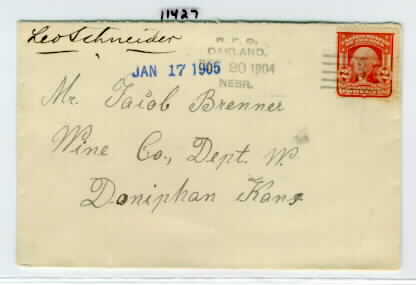 11427
Leo Schneider
R.F.D.
OAKLAND,
20 1904
NEBR.
JAN 17 1905
Mr. Jacob Brenner
Wine Co., Dept. W.
Doniphan Kans